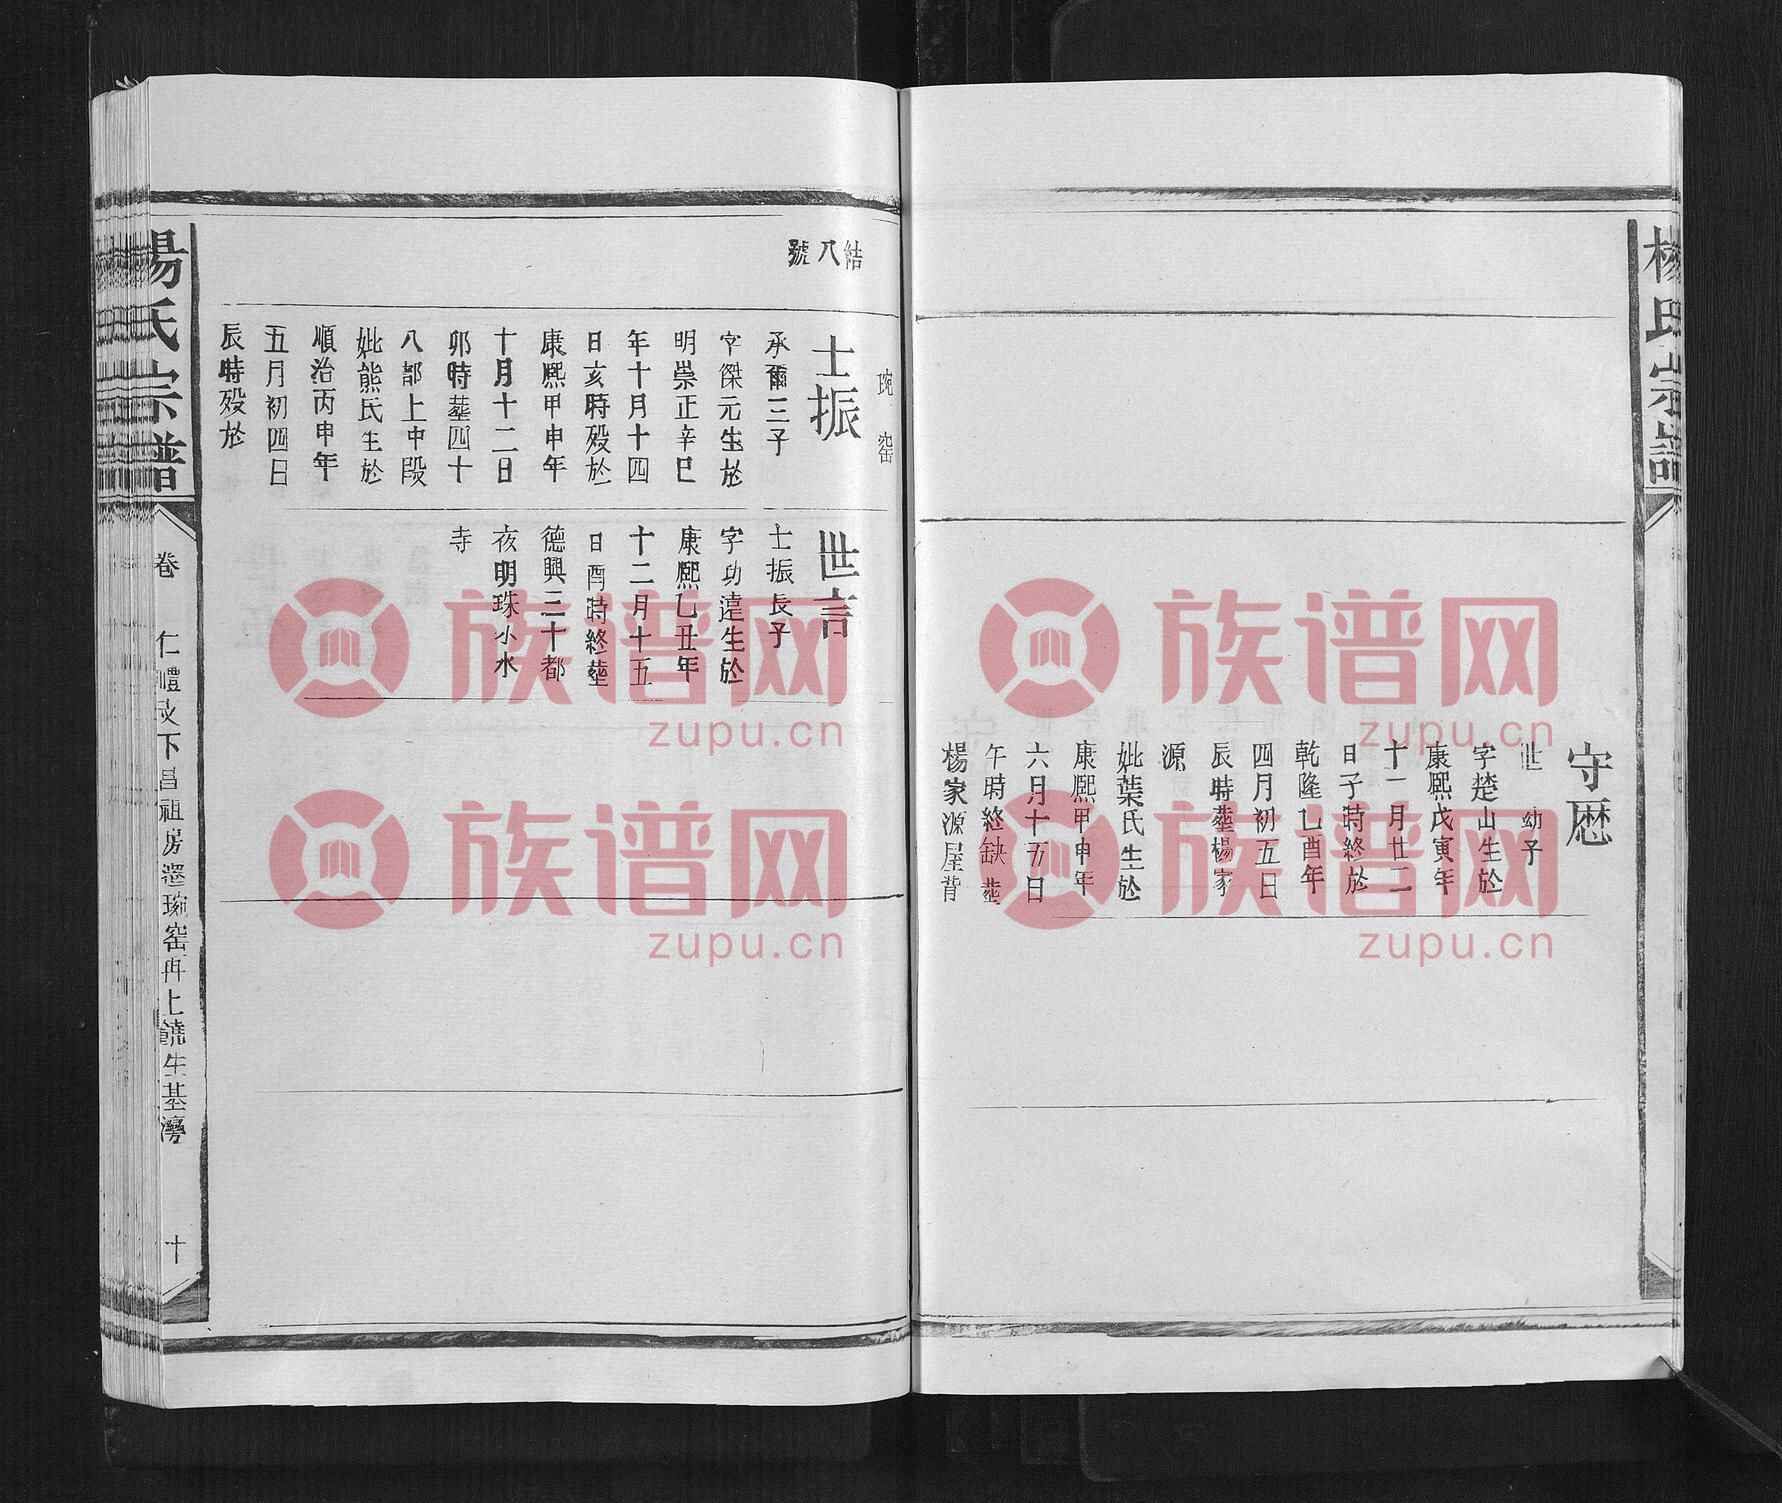 楊氏宗譜
守厯
世 幼子
字楚山生於
康熙戊寅年
十一月廿二
日子時終於
乾隆乙酉年
四月初五日
辰時塟楊家
源
妣葉氏生於
康熙甲申年
六月十五日
午時終缺塟
楊家源屋背
琬窑
結八號
士振
承爾三子
字傑元生於
明崇正辛巳
年十月十四
日亥時殁於
康熙甲申年
十月十二日
卯時塟四十
八都上中段
妣熊氏生於
順治丙申年
五月初四日
辰時殁於
世言
士振長子
字功達生於
康熙乙丑年
十二月十五
日酉時終塟
德興三十都
夜明珠小水
寺
楊氏宗譜
卷
仁禮改下昌祖房遷琬窑再上饒生基灣
十
族谱网
zupu.cn
族谱网
zupu.cn
族谱网
zupu.cn
族谱网
zupu.cn